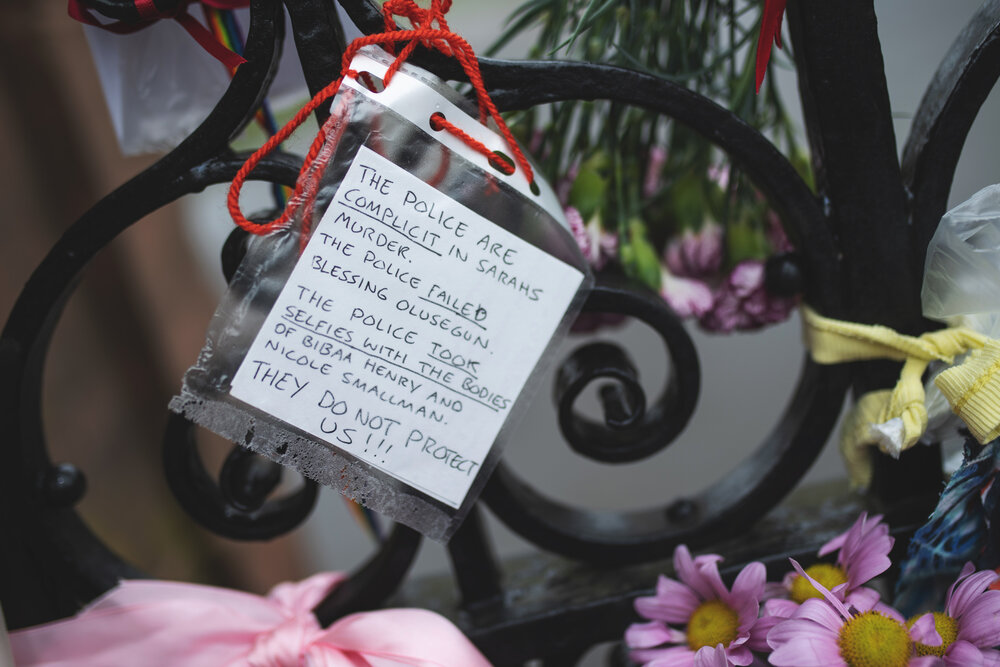 THE POLICE ARE
COMPLICIT IN SARAHS
MURDER.
THE POLICE FAILED
BLESSING OLUSEGUN.
THE POLICE TOOK
SELFIES WITH THE BODIES
OF BIBAA HENRY AND
NICOLE SMALLMAN.
THEY DO NOT PROTECT
US!!!